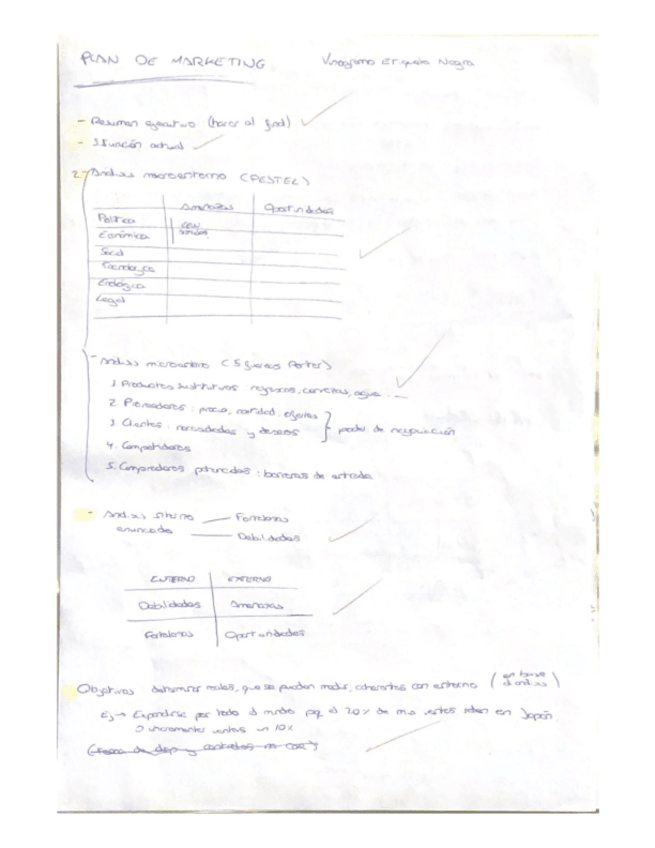 PLAN DE MARKETING Vinagrino Etiqueta Negra
- Resumen ejecutivo (hacer al final)
- Situación actual
2. Análisis macroentorno (PESTEL)
Amenazas Oportunidades
Política
Económica
Social
Tecnológica
Ecológica
Legal
- Análisis microentorno (5 fuerzas Porter)
1. Productos sustitutivos: refrescos, cervezas, agua ...
2. Proveedores: precio, cantidad, ofertas
3 Clientes: necesidades y deseos } poder de negociación
4. Competidores
5. Competidores potenciales: barreras de entrada
- Análisis interno — Fortalezas
enunciado — Debilidades
INTERNO EXTERNO
Debilidades Amenazas
Fortalezas Oportunidades
Objetivos determinar reales, que se puedan medir, coherentes con entorno (en base al análisis)
Ej → Expandirse por todo el mundo pq el 20% de mis ventas están en Japón
O incrementar ventas un 10%